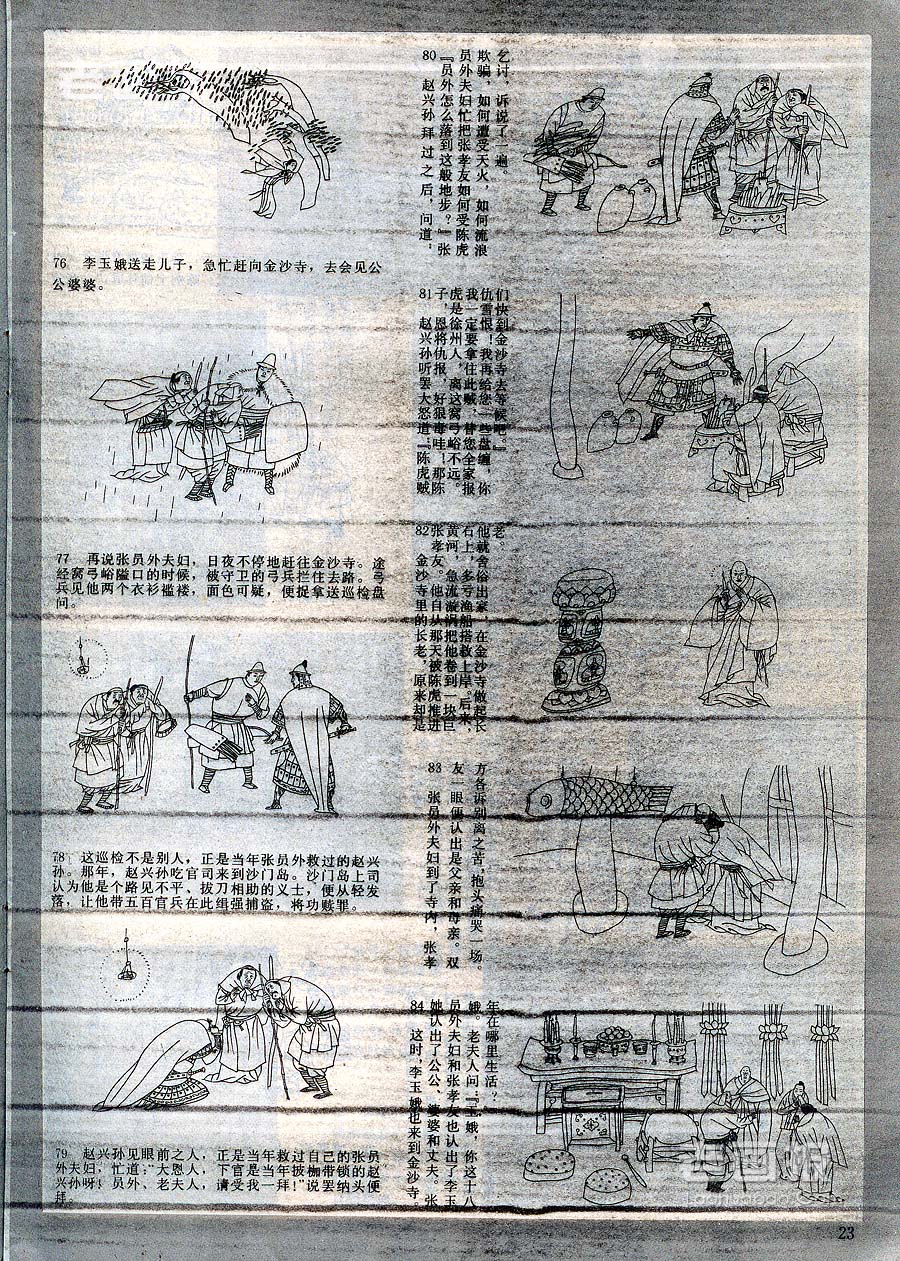 76 李玉娥送走儿子，急忙赶向金沙寺，去会见公
公婆婆。
77 再说张员外夫妇，日夜不停地赶往金沙寺。途
经窝弓峪隘口的时候，被守卫的弓兵拦住去路。弓
兵见他两个衣衫褴褛，面色可疑，便捉拿送巡检盘
问。
78 这巡检不是别人，正是当年张员外救过的赵兴
孙。那年，赵兴孙吃官司来到沙门岛。沙门岛上司
认为他是个路见不平、拔刀相助的义士，便从轻发
落，让他带五百官兵在此缉强捕盗，将功赎罪。
79 赵兴孙见眼前之人，正是当年救过自己的张员
外夫妇，忙道：“大恩人，下官是当年披枷带锁的赵
兴孙呀！员外、老夫人，请受我一拜！”说罢纳头便
拜。
80 赵兴孙拜过之后，问道，
『员外怎么落到这般地步？』张
员外夫妇忙把张孝友如何受陈虎
欺骗，如何遭受天火，如何流浪
乞讨，诉说了一遍。
81 赵兴孙听罢大怒道：『陈虎贼
子，恩将仇报，好狠毒哇！那陈
虎是徐州人，离这窝弓峪不远。
我一定要拿住此贼，替您全家报
仇雪恨！我再给您一些盘缠，你
们快到金沙寺去等候吧。』
82 金沙寺里的长老，原来却是
张孝友。他自从那天被陈虎推进
黄河，急流漩涡把他卷到一块巨
石上，多亏渔船搭救上岸。后来，
他就舍俗出家，在金沙寺做起长
老。
83 张员外夫妇到了寺内，张孝
友一眼便认出是父亲和母亲。双
方各诉别离之苦，抱头痛哭一场。
84 这时，李玉娥也来到金沙寺。
她认出了公公、婆婆和丈夫。张
员外夫妇和张孝友也认出了李玉
娥。老夫人问：『玉娥，你这十八
年在哪里生活？
23